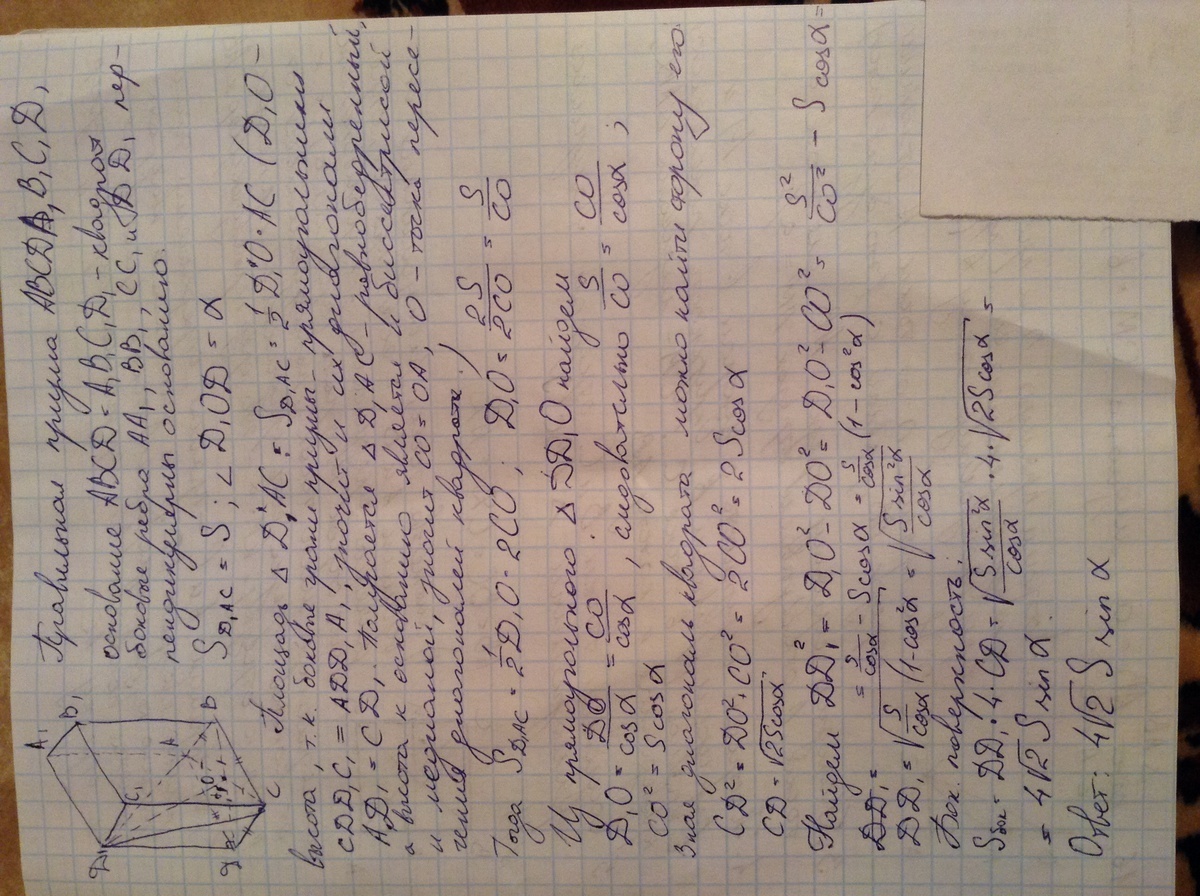 Правильная призма ABCDA₁B₁C₁D₁
основание ABCD = A₁B₁C₁D₁ - квадрат
боковые ребра AA₁, BB₁, CC₁ и DD₁ пер-
пендикулярны основанию.
S_D₁AC = S ; ∠ D₁OD = α
Площадь △ D₁AC = S_D₁AC = 1/2 D₁O · AC (D₁O -
высота, т.к. боковые грани призмы - прямоугольники
CDD₁C₁ = ADD₁A₁, значит и их диагонали
AD₁ = CD₁. Получается △ D₁AC - равнобедренный,
а высота к основанию является и биссектрисой
и медианой, значит CO = OA, O - точка пересе-
чения диагоналей квадрата.)
Тогда S_D₁AC = 1/2 D₁O · 2CO ; D₁O = 2S/2CO = S/CO
Из прямоугольного △ DD₁O найдем
D₁O = DO/cosα = CO/cosα, следовательно S/CO = CO/cosα ;
CO² = S cosα
Зная диагональ квадрата можно найти сторону его
CD² = DO² + CO² = 2CO² = 2S cosα
CD = √2Scosα
Найдем DD₁² = D₁O² - DO² = D₁O² - CO² = S²/CO² - S cosα =
= S/cosα - S cosα = S/cosα (1 - cos²α)
DD₁ = √S/cosα (1-cos²α) = √S sin²α/cosα
Бок. поверхность:
Sбок = DD₁ · 4 · CD = √S sin²α/cosα · 4 · √2Scosα =
= 4√2 S sin α
Ответ: 4√2 S sin α
D₁
A₁
B₁
C₁
A
B
C
D
O
α